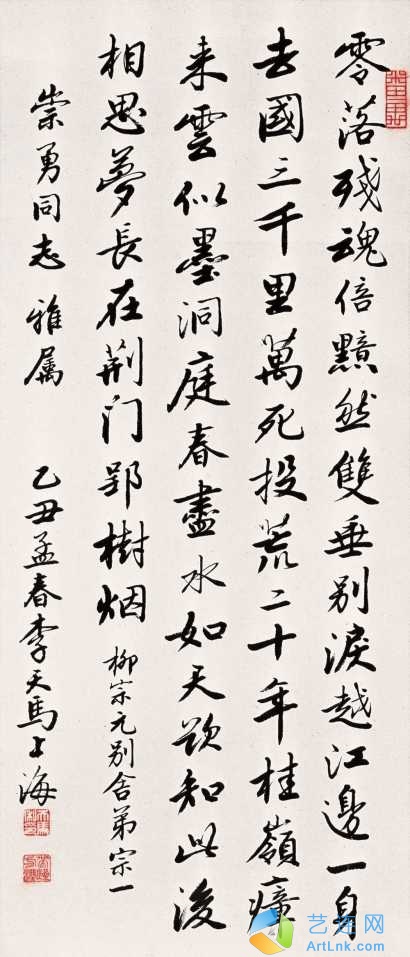 零落残魂倍黯然雙垂别淚越江邊一身
去國三千里萬死投荒二十年桂嶺瘴
来雲似墨洞庭春盡水如天欲知此後
相思夢長在荆门郢樹烟 柳宗元别舍弟宗一
崇勇同志雅属 乙丑孟春李天馬上海
艺连网
ArtLnk.com